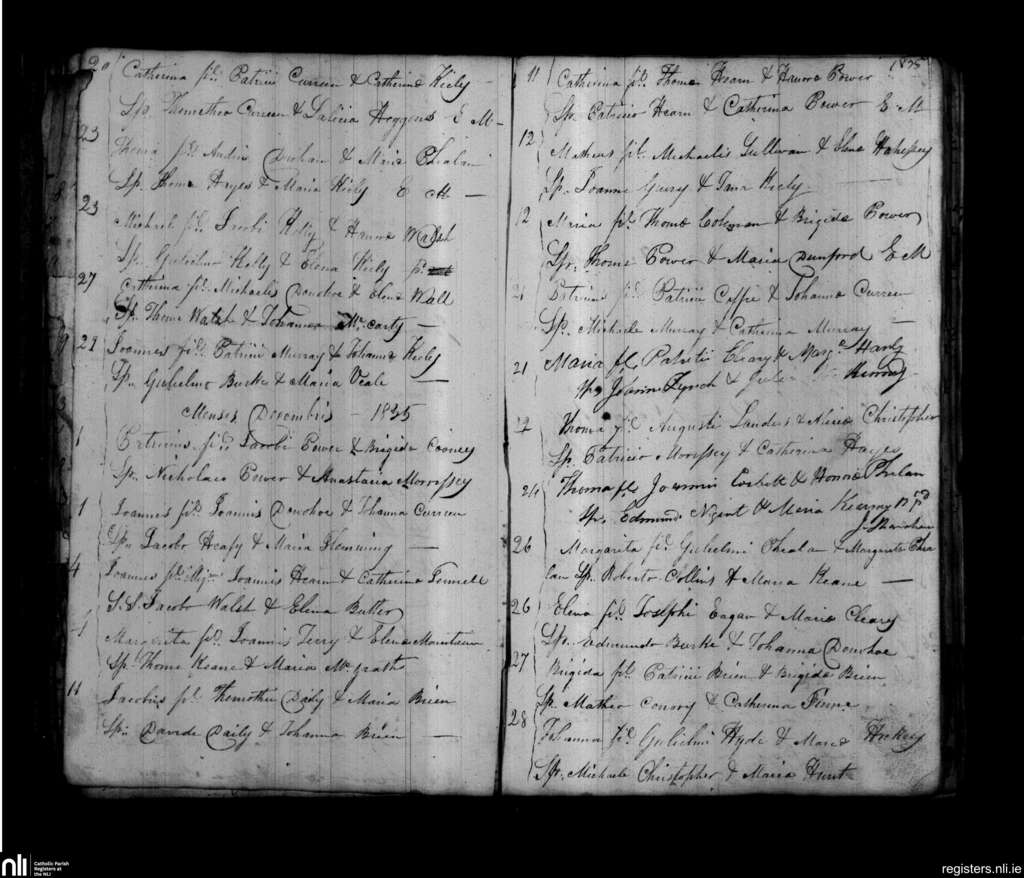 20 Catherina fil Patricii Curreen & Catherina Kiely
Sp. Themothea Curreen & Daliria Hoggens E M
23 Thoma fil Andrii & Maria Phialan
Sp. Thoma Hayes & Maria Kiely E M
23 Michael fil Jacobi Kelly & Honora Walsh
Sp. Gulielmo Kelly & Elena Kiely
27 Catherina fil Michaelis Donohoe & Elena Wall
Sp. Thoma Walsh & Johanna Mc carty
29 Joannes fil Patricii Murray & Johanna Kiely
Sp. Gulielmo Burke & Maria Veale
Menses Decembris 1835
1 Patricius fil Jacobi Power & Brigida Cooney
Sp. Nicholaco Power & Anastaria Morressey
1 Joannes fil Joannis Donohoe & Johanna Curreen
Sp. Jacobo Heafy & Maria Flemming
4 Joannes fil Joannis Hearn & Catherina Fennell
S.S. Jacobo Walsh & Elena Butler
Margarita fil Joannis Terry & Elena Mountain
Sp. Thoma Keane & Maria Mc grath
11 Jacobus fil Themothei Daily & Maria Brien
Sp. Davide Daily & Johanna Brien
1835
11 Catherina fil Thoma Hearn & Honora Power
Sp. Patricio Hearn & Catherina Power E M
12 Matheus fil Michaelis Sullivan & Elena Hahessey
Sp. Joanne Guiry & Jana Kiely
12 Maria fil Thoma Coleman & Brigida Power
Sp. Thoma Power & Maria Dunford E M
21 Patricius fil Patricii Coffee & Johanna Curreen
Sp. Michaele Murray & Catherina Murray
21 Maria fil Patritii Cleary & Marg. Harty
Sp. Joanne Lynch & Julia Kenny
22 Thoma fil Augusti Landers & Alicia Christopher
Sp. Patricio Morressey & Catherina Hayes
24 Thoma fil Joannis Corbett & Honora Phelan
Sp. Edmund Nugent & Maria Kearney
J. Shanahan
26 Margarita fil Gulielmi Phealan & Margarita Phea
lan Sp. Roberto Collins & Maria Keane
26 Elena fil Josephi Eagan & Maria Cleary
Sp. Edmundo Burke & Johanna Donohoe
27 Brigida fil Patricii Brien & Brigida Brien
Sp. Matheo Conory & Catherina Finne
28 Johanna fil Gulielmi Hyde & Maria Hickey
Sp. Michaele Christopher & Maria Hunt
nli Catholic Parish
Registers at
the NLI
registers.nli.ie